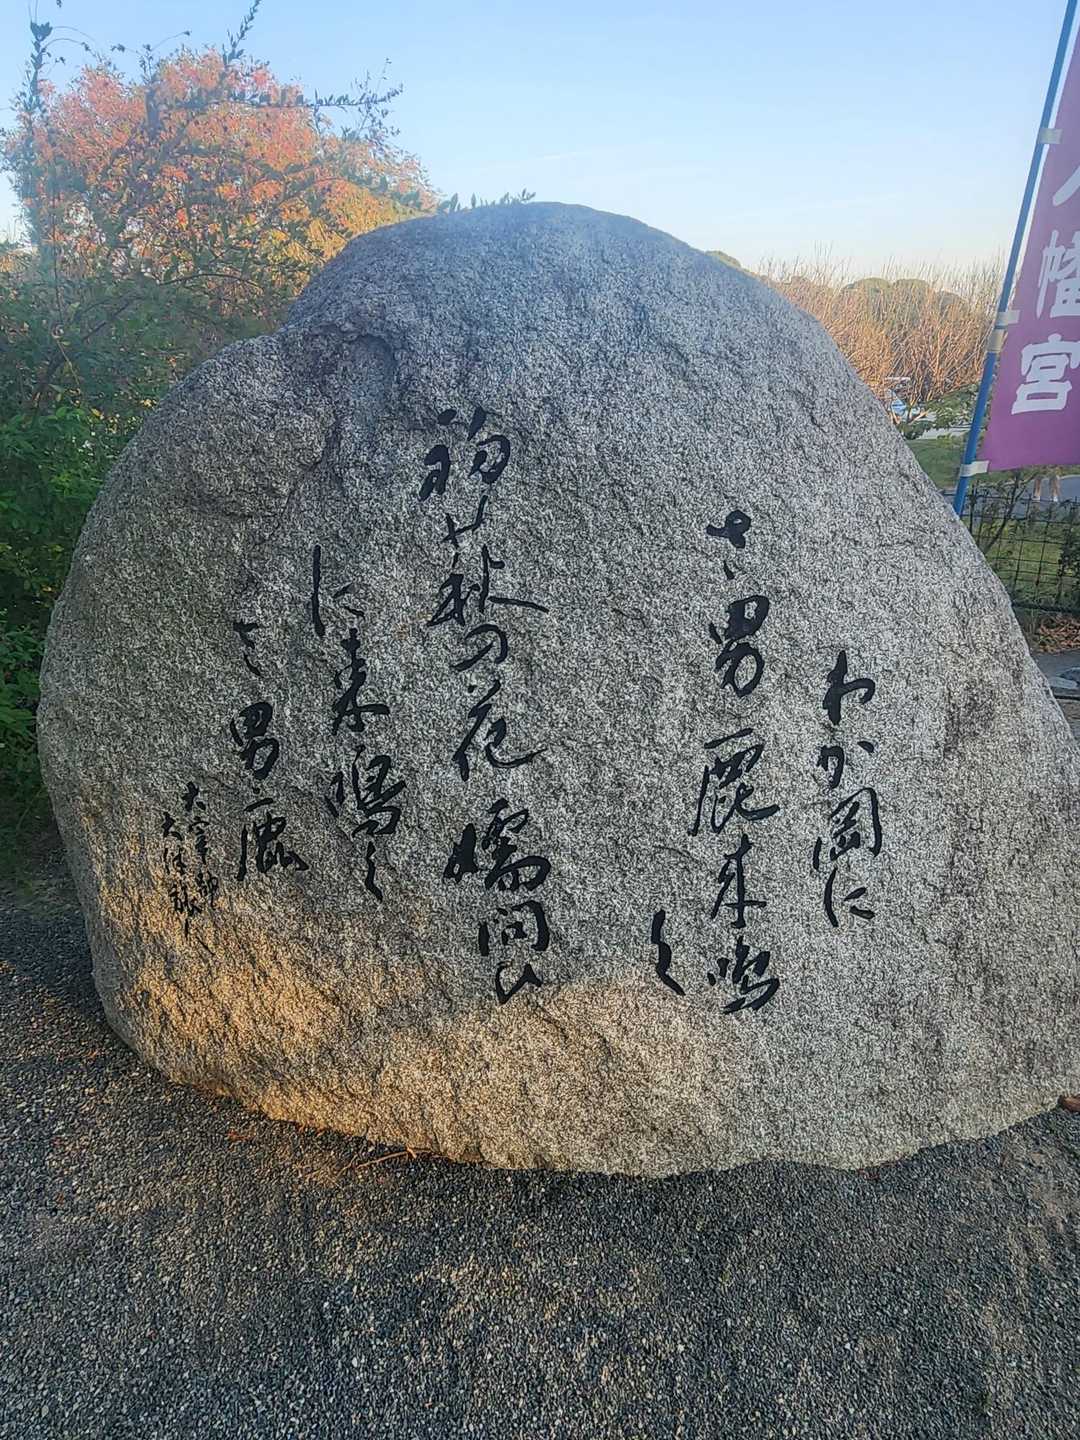 わか岡に
さ男鹿来鳴
く
初萩の花嬬問ひ
に来鳴く
さ男鹿
大宰帥
大伴旅人
八幡宮